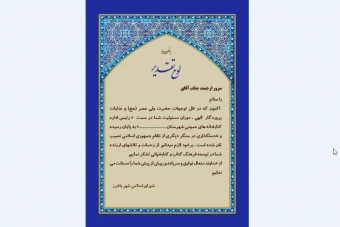 لوح تقدیر
سرور ارجمند جناب آقای
با سلام
اکنون که در ظل توجهات حضرت ولی عصر (عج) و عنایات
پروردگار الهی ، دوران مسئولیت شما در سمت « رئیس اداره
کتابخانه های عمومی شهرستان ................» به پایان رسیده
و خدمتگذاری در سنگر دیگری از نظام جمهوری اسلامی نصیب
تان شده است، بر خود لازم میدانیم از زحمات و تلاشهای ارزنده
شما در توسعه فرهنگ کتاب و کتابخوانی تشکر نمایم.
از خداوند متعال توفیق و سربلندی بیش از پیش شما را مسئلت می
نمایم
شورای اسلامی شهر